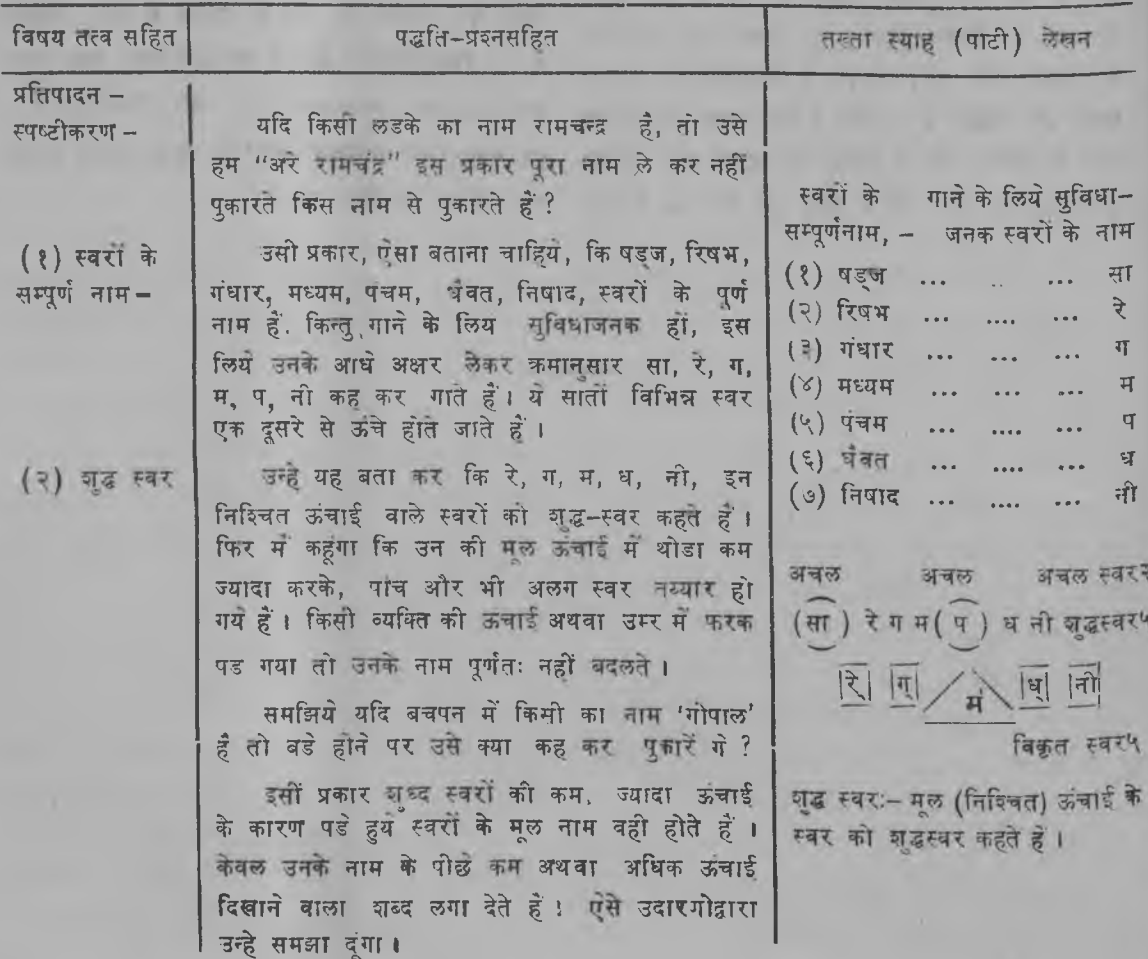 विषय तत्व सहित
पद्धति-प्रश्नसहित
तख्ता स्याह (पाटी) लेखन
प्रतिपादन -
स्पष्टीकरण -
(१) स्वरों के
सम्पूर्ण नाम -
(२) शुद्ध स्वर
यदि किसी लडके का नाम रामचन्द्र है, तो उसे
हम "अरे रामचंद्र" इस प्रकार पूरा नाम ले कर नहीं
पुकारते किस नाम से पुकारते हैं ?
उसी प्रकार, ऐसा बताना चाहिये, कि षड्ज, रिषभ,
गंधार, मध्यम, पंचम, धैवत, निषाद, स्वरों के पूर्ण
नाम हैं. किन्तु गाने के लिय सुविधाजनक हों, इस
लिये उनके आधे अक्षर लेकर क्रमानुसार सा, रे, ग,
म, प, नी कह कर गाते हैं। ये सातों विभिन्न स्वर
एक दूसरे से ऊंचे होते जाते हैं ।
उन्हे यह बता कर कि रे, ग, म, ध, नी, इन
निश्चित ऊंचाई वाले स्वरों को शुद्ध-स्वर कहते हैं ।
फिर में कहूंगा कि उन की मूल ऊंचाई में थोडा कम
ज्यादा करके, पांच और भी अलग स्वर तय्यार हो
गये हैं । किसी व्यक्ति की ऊंचाई अथवा उम्र में फरक
पड गया तो उनके नाम पूर्णतः नहीं बदलते ।
समझिये यदि बचपन में किसी का नाम 'गोपाल'
है तो बडे होने पर उसे क्या कह कर पुकारें गे ?
इसी प्रकार शुध्द स्वरों की कम, ज्यादा ऊंचाई
के कारण पडे हुये स्वरों के मूल नाम वही होते हैं ।
केवल उनके नाम के पीछे कम अथवा अधिक ऊंचाई
दिखाने वाला शब्द लगा देते हैं । ऐसे उदारगोद्वारा
उन्हे समझा दूंगा ।
स्वरों के गाने के लिये सुविधा-
सम्पूर्णनाम, - जनक स्वरों के नाम
(१) षड्ज ... .. ... सा
(२) रिषभ ... .... ... रे
(३) गंधार ... ... ... ग
(४) मध्यम ... ... ... म
(५) पंचम ... .... ... प
(६) धैवत ... .... ... ध
(७) निषाद ... .... ... नी
अचल अचल अचल स्वर२
(सा) रे ग म (प) ध नी शुद्धस्वर५
रे॒ ग॒ म॑ ध॒ नी॒
विकृत स्वर५
शुद्ध स्वर:- मूल (निश्चित) ऊंचाई के
स्वर को शुद्धस्वर कहते हें ।